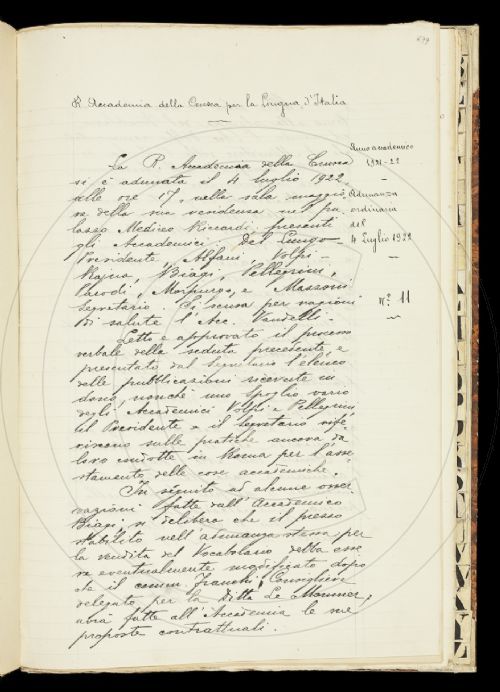 679
R. Accademia della Crusca per la Lingua d'Italia
Anno accademico
1921-22
Adunanza
ordinaria
del
4 Luglio 1922
N.º 11
La R. Accademia della Crusca
si è adunata il 4 luglio 1922,
alle ore 17, nella sala maggio
re della sua residenza nel pa
lazzo Medici Riccardi, presenti
gli Accademici Del Lungo
Presidente, Alfani, Volpi
Rajna, Biagi, Pellegrini,
Parodi, Morpurgo, e Mazzoni
Segretario. Si scusa per ragioni
di salute l'Acc. Vandelli.
Letto e approvato il processo
verbale della seduta precedente, e
presentato dal Segretario l'elenco
delle pubblicazioni ricevute in
dono, nonchè uno spoglio vario
degli Accademici Volpi e Pellegrini,
il Presidente e il Segretario rife
riscono sulle pratiche ancora da
loro condotte in Roma per l'asse
stamento delle cose accademiche.
In seguito ad alcune osser
vazioni fatte dall'Accademico
Biagi, si delibera che il prezzo
stabilito nell'adunanza stessa per
la vendita del Vocabolario debba esse
re eventualmente modificato dopo
che il comm. Franchi, Consigliere
delegato per la Ditta Le Monnier,
avrà fatte all'Accademia le sue
proposte contrattuali.